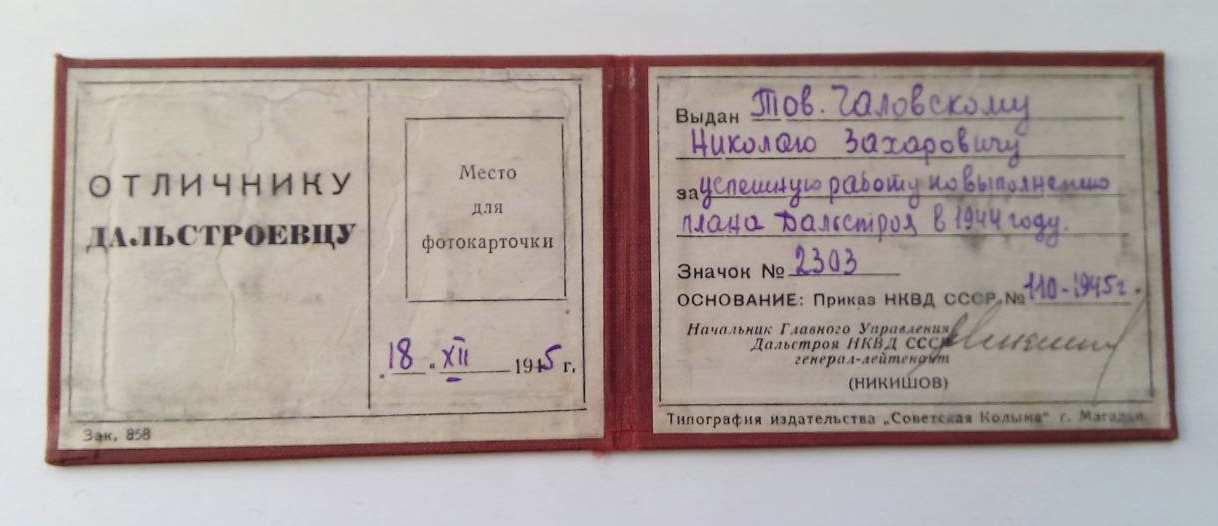 ОТЛИЧНИКУ
ДАЛЬСТРОЕВЦУ
Место
для
фотокарточки
„18 “ XII 1945 г.
Зак. 858
Выдан Тов. Чаловскому
Николаю Захаровичу
за успешную работу по выполнению
плана Дальстроя в 1944 году.
Значок № 2303
ОСНОВАНИЕ: Приказ НКВД СССР № 110-1945г.
Начальник Главного Управления
Дальстроя НКВД СССР
генерал-лейтенант
(НИКИШОВ)
Типография издательства „Советская Колыма“ г. Магадан